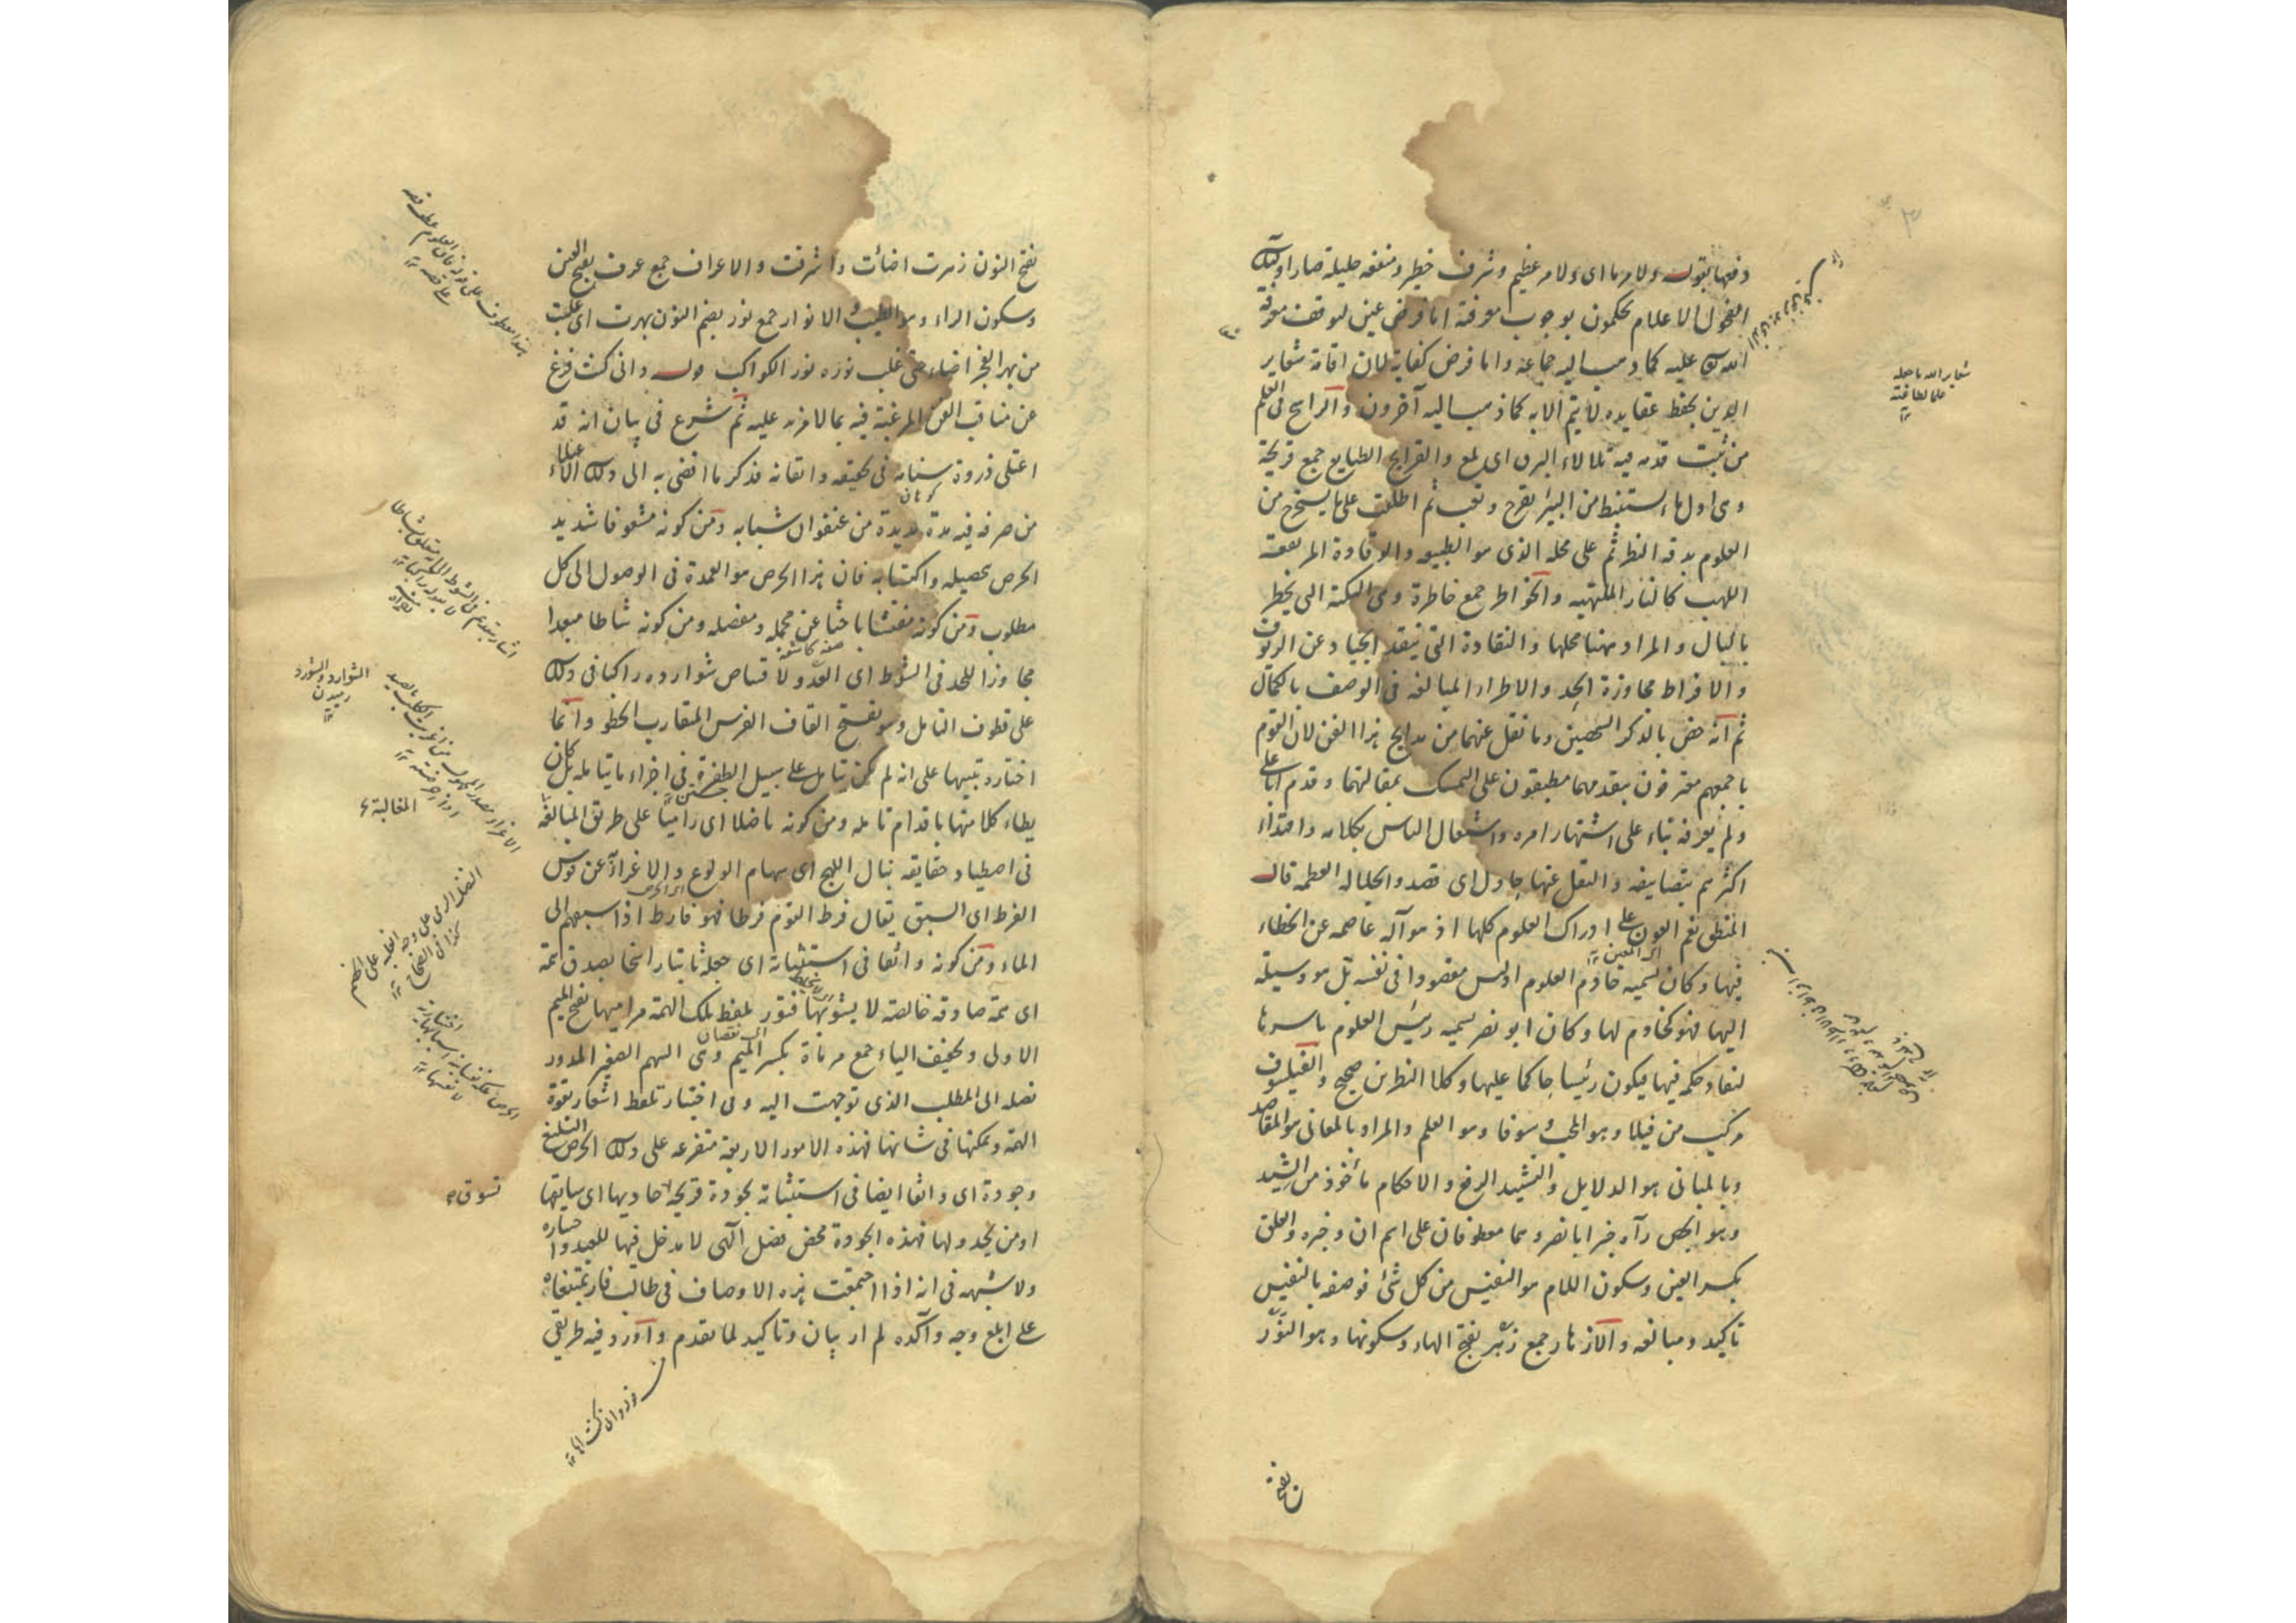 وفيها بقوله ولامر ما اى ولامر عظيم وشرف خطير ومنفعة جليلة صار اولئك
الفحول الاعلام يحكمون بوجوب معرفته اما فرض عين لتوقف معرفة
الله تع عليه كما ذهب اليه جماعة واما فرض كفاية لان اقامة شعاير
الدين بحفظ عقايده لا يتم الا به كما ذهب اليه آخرون والراسخ فى العلم
من ثبت قدمه فيه تلالاء البرق اى لمع والقرايح الطبايع جمع قريحة
وهى اول ماء يستنبط من البئر بقرح وتعب ثم اطلقت على ما يستخرج من
العلوم بدقة النظر ثم على محله الذى هو الطبيعة والوقادة المرتفعة
اللهب كالنار الملتهبة والخواطر جمع خاطرة وهى النكتة التى يخطر
بالبال والمراد ههنا محلها والنقادة التى تنقد الجياد عن الزيوف
والافراط مجاوزة الحد والاطراء المبالغة فى الوصف بالكمال
ثم انه خص بالذكر الشيخين وما نقل عنهما من مدايح هذا الفن لان القوم
باجمعهم معترفون بتقدمهما مطبقون على التمسك بمقالتهما وقدم ابا على
ولم يعرفه بناء على اشتهار امره واشتغال الناس بكلامه واقتداء
اكثرهم بتصانيفه والنقل عنها حاول اى قصد والجلالة العظمة قال
المنطق نعم العون على ادراك العلوم كلها اذ هو آلة عاصمة عن الخطاء
فيها وكان يسميه خادم العلوم اذ ليس مقصودا فى نفسه بل هو وسيلة
اليها فهو كخادم لها وكان ابو نصر يسميه رئيس العلوم باسرها
لنفاذ حكمه فيها فيكون رئيسا حاكما عليها وكلا النظرين صحيح والفيلسوف
مركب من فيلا وهو المحب وسوفا وهو العلم والمراد بالمعانى هو المقاصد
وبالمبانى هو الدلايل والتشييد الرفع والاحكام مأخوذ من الشيد
وهو الجص رآه خبر ابا نصر وهما معطوفان على اسم ان وخبره والعلق
بكسر العين وسكون اللام هو النفيس من كل شئ فوصفه بالنفيس
تاكيد ومبالغة والازهار جمع زهر بفتح الهاء وسكونها وهو النور
بفتح
شعاير الله ما جعله
علما لطاعته
بفتح النون زهرت اضائت واشرقت والاعراف جمع عرف بفتح العين
وسكون الراء وهو الطيب والانوار جمع نور بضم النون بهرت اى غلبت
من بهر القمر اضاء حتى غلب نوره نور الكواكب قوله وانى كنت فرغ
عن مناقب الفن المرغبة فيه بما لا مزيد عليه ثم شرع فى بيان انه قد
اعتلى ذروة سنامه فى تحقيقه واتقانه فذكر ما افضى به الى ذلك الاعتلاء
كوهان
من صرفه فيه مدة مديدة من عنفوان شبابه ومن كونه مشعوفا شديد
الحرص بتحصيله واكتسابه فان هذا الحرص هو العمدة فى الوصول الى كل
مطلوب ومن كونه مفتشا باحثا عن مجمله ومفصله ومن كونه شاطا مبعدا
صفة كاشفة
مجاوزا للحد فى الشوط اى العدو لاقتناص شوارده راكبا فى ذلك
على قطوف التامل وهو بفتح القاف الفرس المتقارب الخطو وانما
اختاره تنبيها على انه لم يكن تامله على سبيل الطفرة فى اجزاء ما يتامله بل كان
جستن
يطاء كلا منها باقدام تامله ومن كونه ناضلا اى راميا على طريق المبالغة
فى اصطياد حقايقه بنبال اللهج اى سهام الولوع والاغراء عن قوس
الفرط اى السبق يقال فرط القوم فرطا فهو فارط اذا سبقهم الى
الماء ومن كونه واثقا فى استثباته اى جعله ثابتا راسخا بصدق همة
اى همة صادقة خالصة لا يشوبها فتور بلفظ تلك الهمة مراميها بفتح الميم
الاولى وتخفيف الياء جمع مرماة بكسر الميم وهى السهم الصغير المدور
اى نقصان
نصله الى المطلب الذى توجهت اليه وفى اختيار تلفظ اشعار بقوة
الهمة وتمكنها فى شانها فهذه الامور الاربعة متفرعة على ذلك الحرص البليغ
وجودة اى واثقا ايضا فى استثباته بجودة قريحة حاديها اى سايقها
او من يحدو لها فهذه الجودة محض فضل آلهى لا مدخل فيها للعبد واختياره
ولا شبهة فى انه اذا اجتمعت هذه الاوصاف فى طالب فاز بمبتغاه
على ابلغ وجه وآكده لم ار بيان وتاكيد لما تقدم واورد فيه طريقى
الشوارد والشرود
رميدن
المغالبة
تسوق